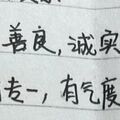 善良，诚实
专一，有气度